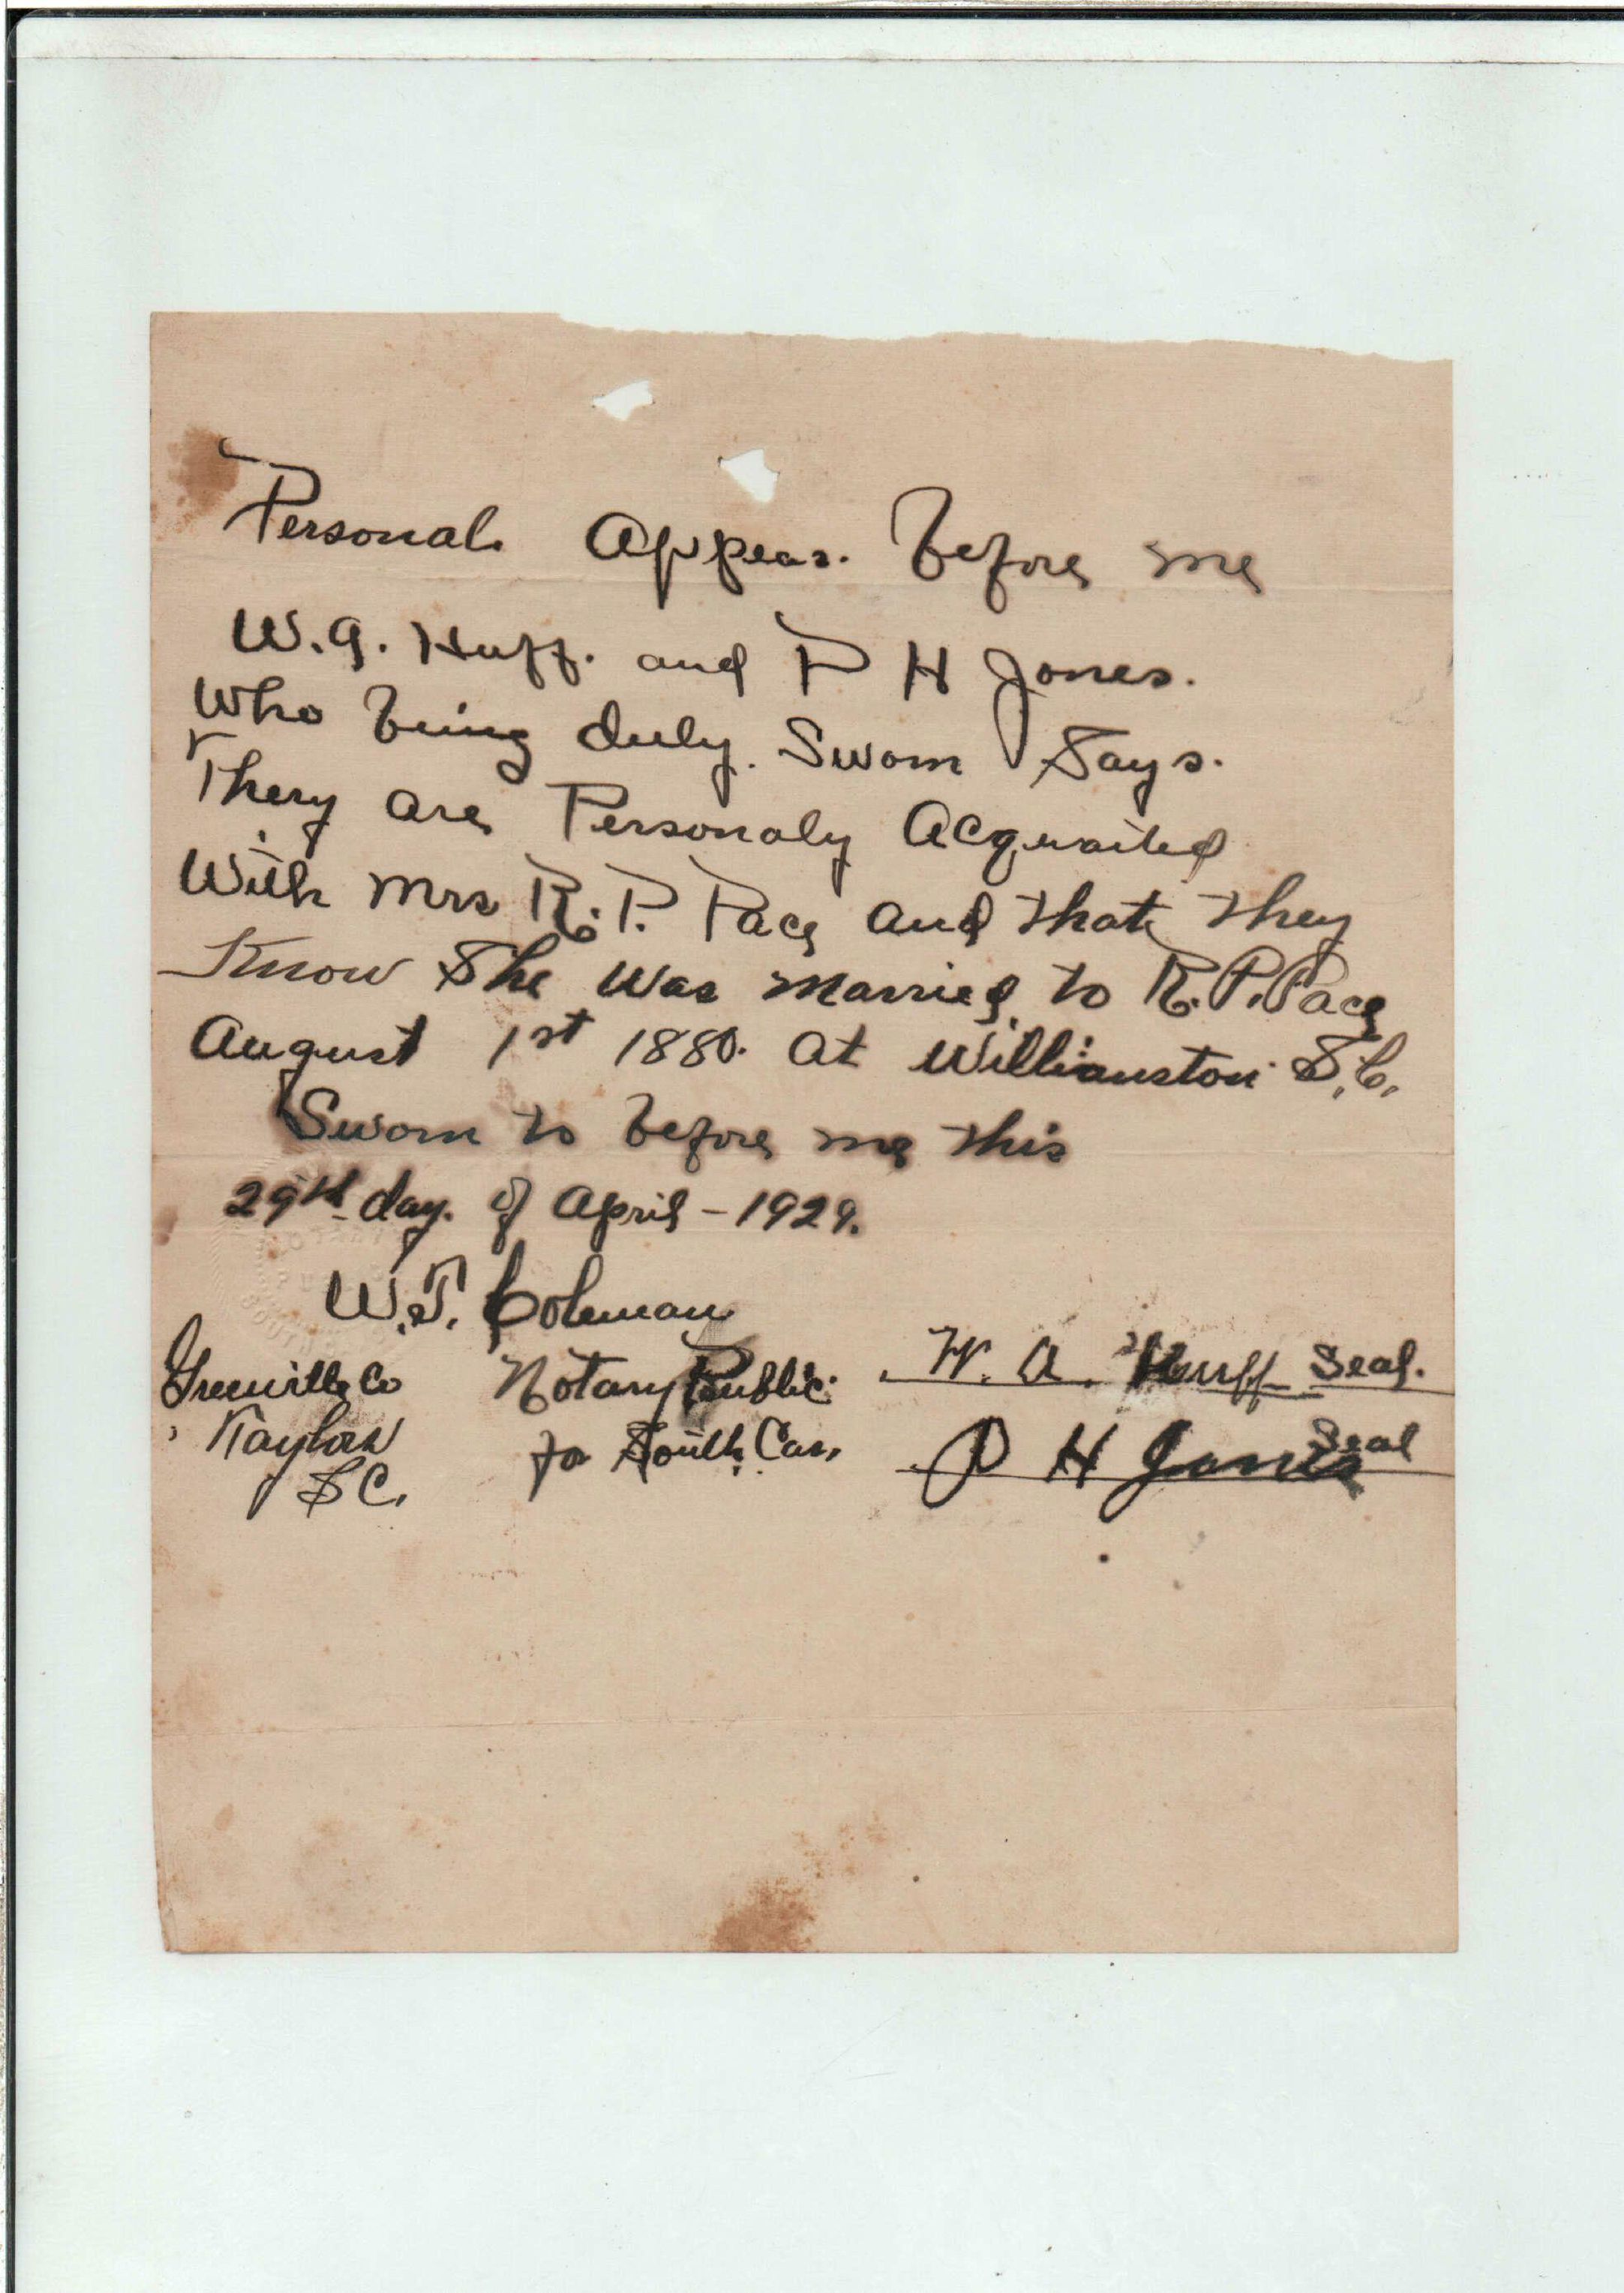 Personal Appear. Before me
W.A. Huff. and P H Jones.
Who being duly. Sworn Says.
They are Personaly Acquaited
With Mrs R. P. Pace and that they
Know She was married to R. P. Pace
August 1st 1880. at Willianston S.C.
Sworn to before me this
29th day. of April - 1929.
W.T. Coleman
Greenville Co Notary Public. W. A. Huff Seal.
Taylors for South Car. P H Jones Seal
S C.
NOTARY